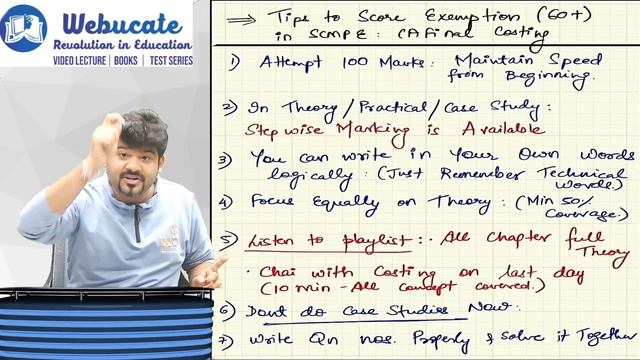 Webucate
Revolution in Education
VIDEO LECTURE | BOOKS | TEST SERIES
⇒ Tips to Score Exemption (60+)
in SCMPE : CA Final Costing
1) Attempt 100 Marks : Maintain Speed
from Beginning.
2) In Theory / Practical / Case Study :
Step wise Marking is Available
3) You can write in Your Own Words
logically : (Just Remember Technical
Words.)
4) Focus Equally on Theory : (Min 50%
Coverage.)
5) Listen to playlist : · All Chapter full
Theory
· Chai with Costing on last day
(10 min - All concept covered.)
6) Dont do Case Studies Now.
7) Write Qn nos. Properly & Solve it Together